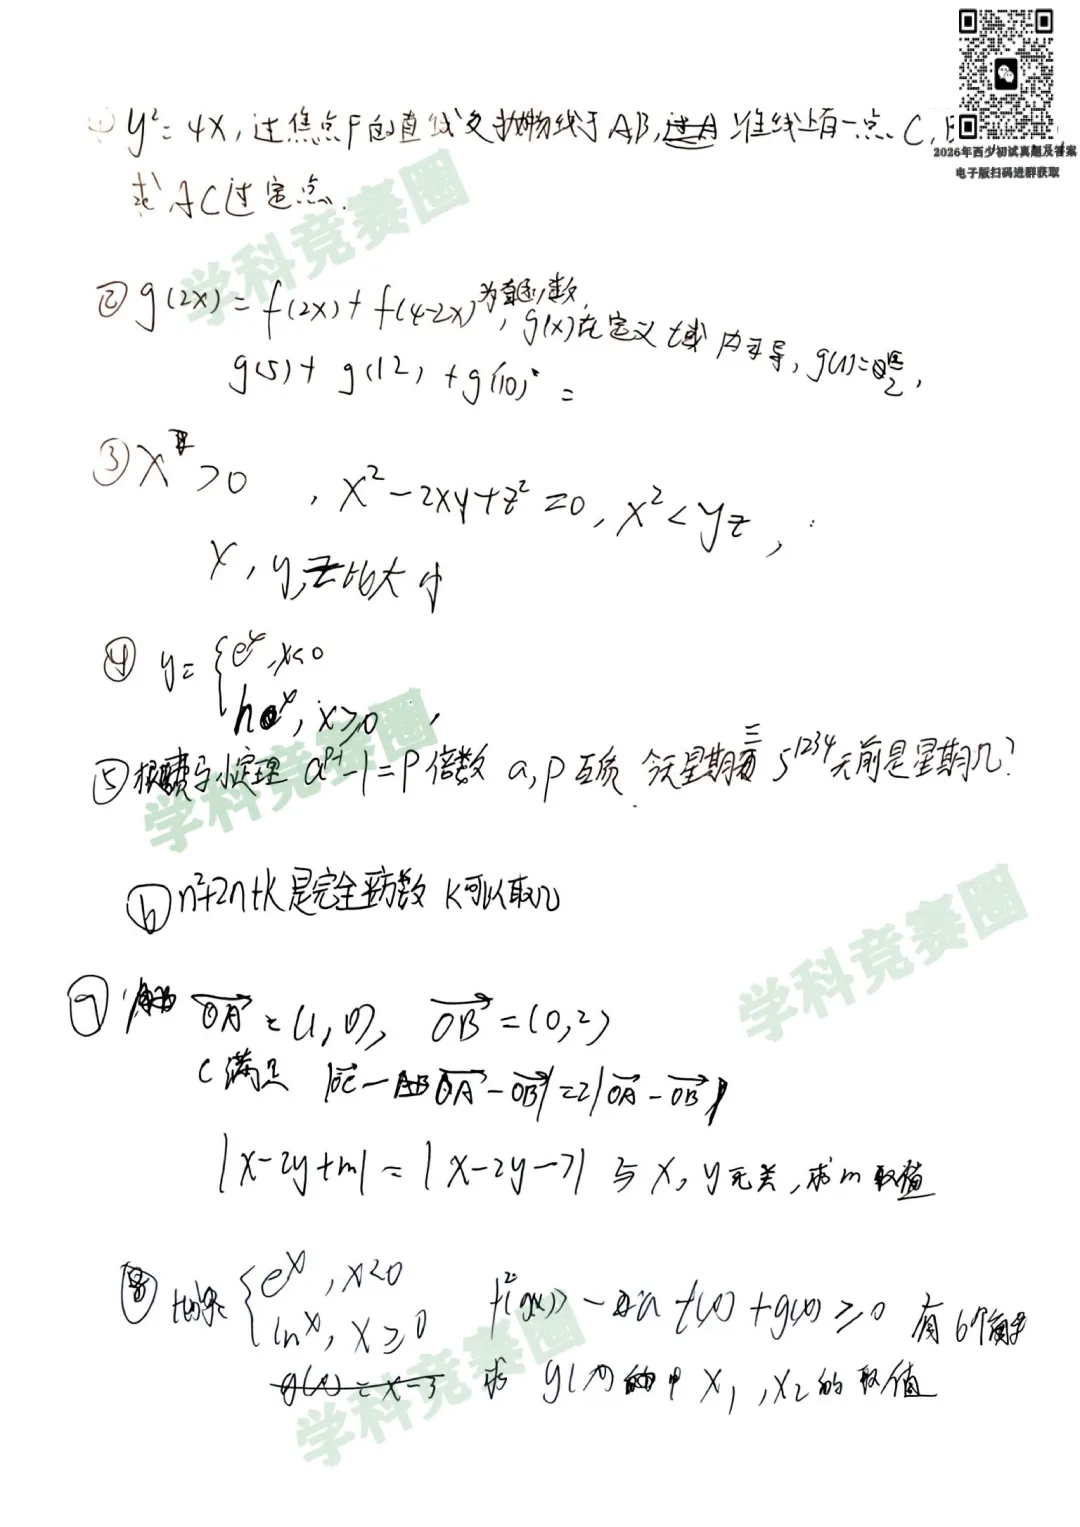 2026年西少初试真题及答案
电子版扫码进群获取
① y²=4x,过焦点F的直线交抛物线于AB,准线上有一点C,
求AC过定点.
② g(2x)=f(2x)+f(4-2x)为奇函数,g(x)在定义域内可导,g(1)=2,
g(5)+g(12)+g(10)=
③ x>0,x²-2xy+z²=0,x²<yz,
x,y,z比大小
④ y={e^x,x<0
x≥0,
⑤ 根据费马小定理 a^(p-1)-1=p倍数 a,p互质 今天星期三 5^1234天前是星期几?
⑥ n²+2n+k是完全平方数 k可以取几
OA=(1,0), OB=(0,2)
C满足 |OC-OA-OB|=2|OA-OB|
|x-2y+m|=|x-2y-7| 与x,y无关,求m取值
⑧ {e^x,x<0
ln^x,x≥0 f²(g(x))-af(x)+g(x)≥0 有6个
求g(x)的中x₁,x₂的取值
学科竞赛圈
学科竞赛圈
学科竞赛圈
学科竞赛圈